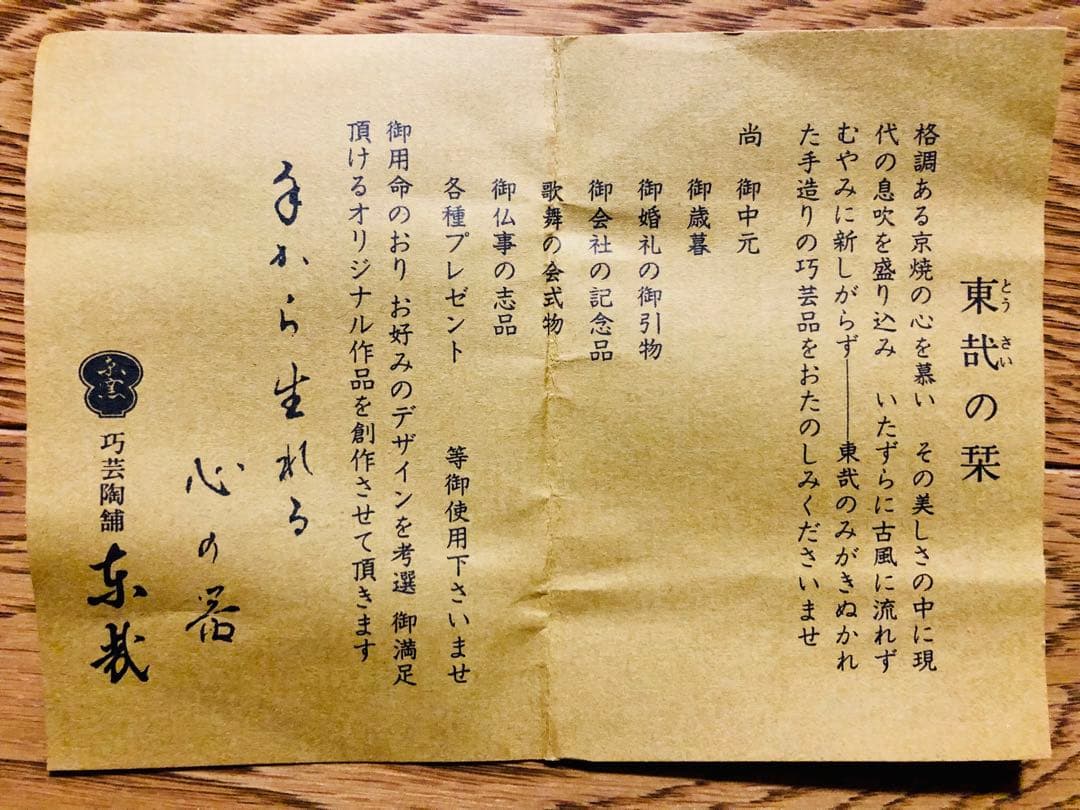 東哉の栞
とうさい
格調ある京焼の心を慕い その美しさの中に現
代の息吹を盛り込み いたずらに古風に流れず
むやみに新しがらず――東哉のみがきぬかれ
た手造りの巧芸品をおたのしみくださいませ
尚 御中元
御歳暮
御婚礼の御引物
御会社の記念品
歌舞の会式物
御仏事の志品
各種プレゼント 等御使用下さいませ
御用命のおり お好みのデザインを考選 御満足
頂けるオリジナル作品を創作させて頂きます
手から生れる
心の器
京窯
巧芸陶舗 東哉